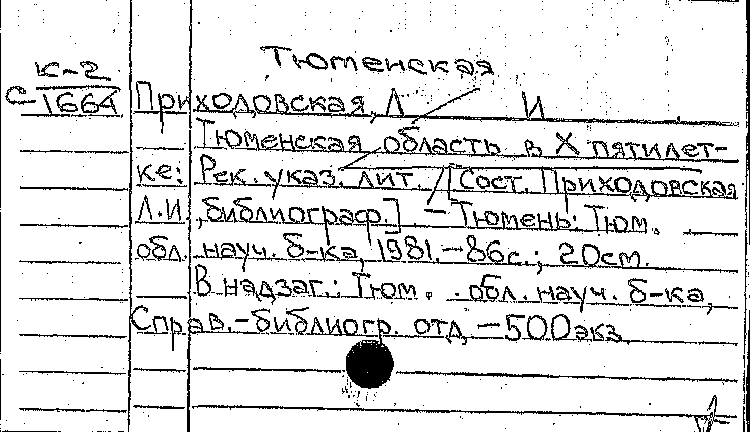 Тюменская
К-2
С-1664
Приходовская, Л И
Тюменская область в X пятилет-
ке: Рек. указ. лит. [Сост. Приходовская
Л.И., библиограф.]. – Тюмень: Тюм.
обл. науч. б-ка, 1981. – 86с.; 20см.
В надзаг.: Тюм. обл. науч. б-ка,
Справ.-библиогр. отд. – 500экз.